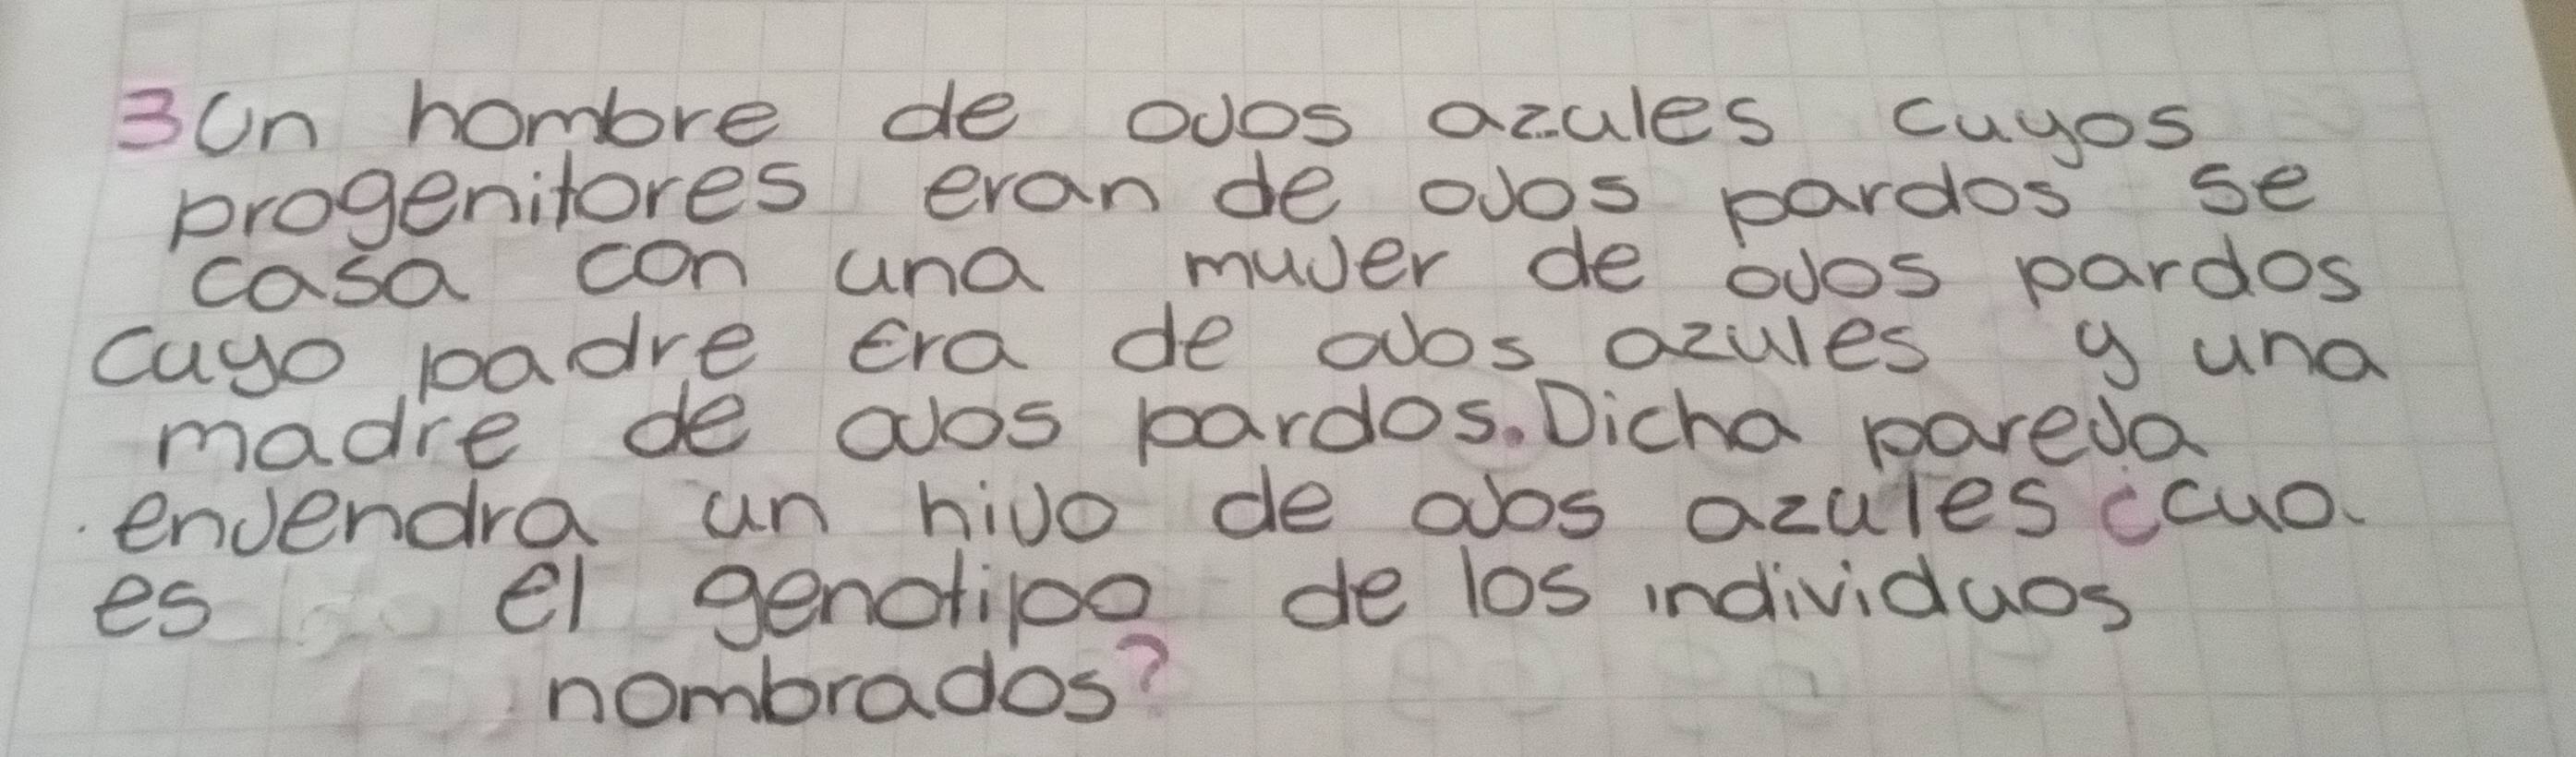 3 Un hombre de ojos azules cuyos
progenitores eran de ojos pardos se
casa con una mujer de ojos pardos
cuyo padre era de ojos azules y una
madre de ojos pardos. Dicha pareja
enjendra un hijo de ojos azules ¿cua
es el genotipo de los individuos
nombrados?